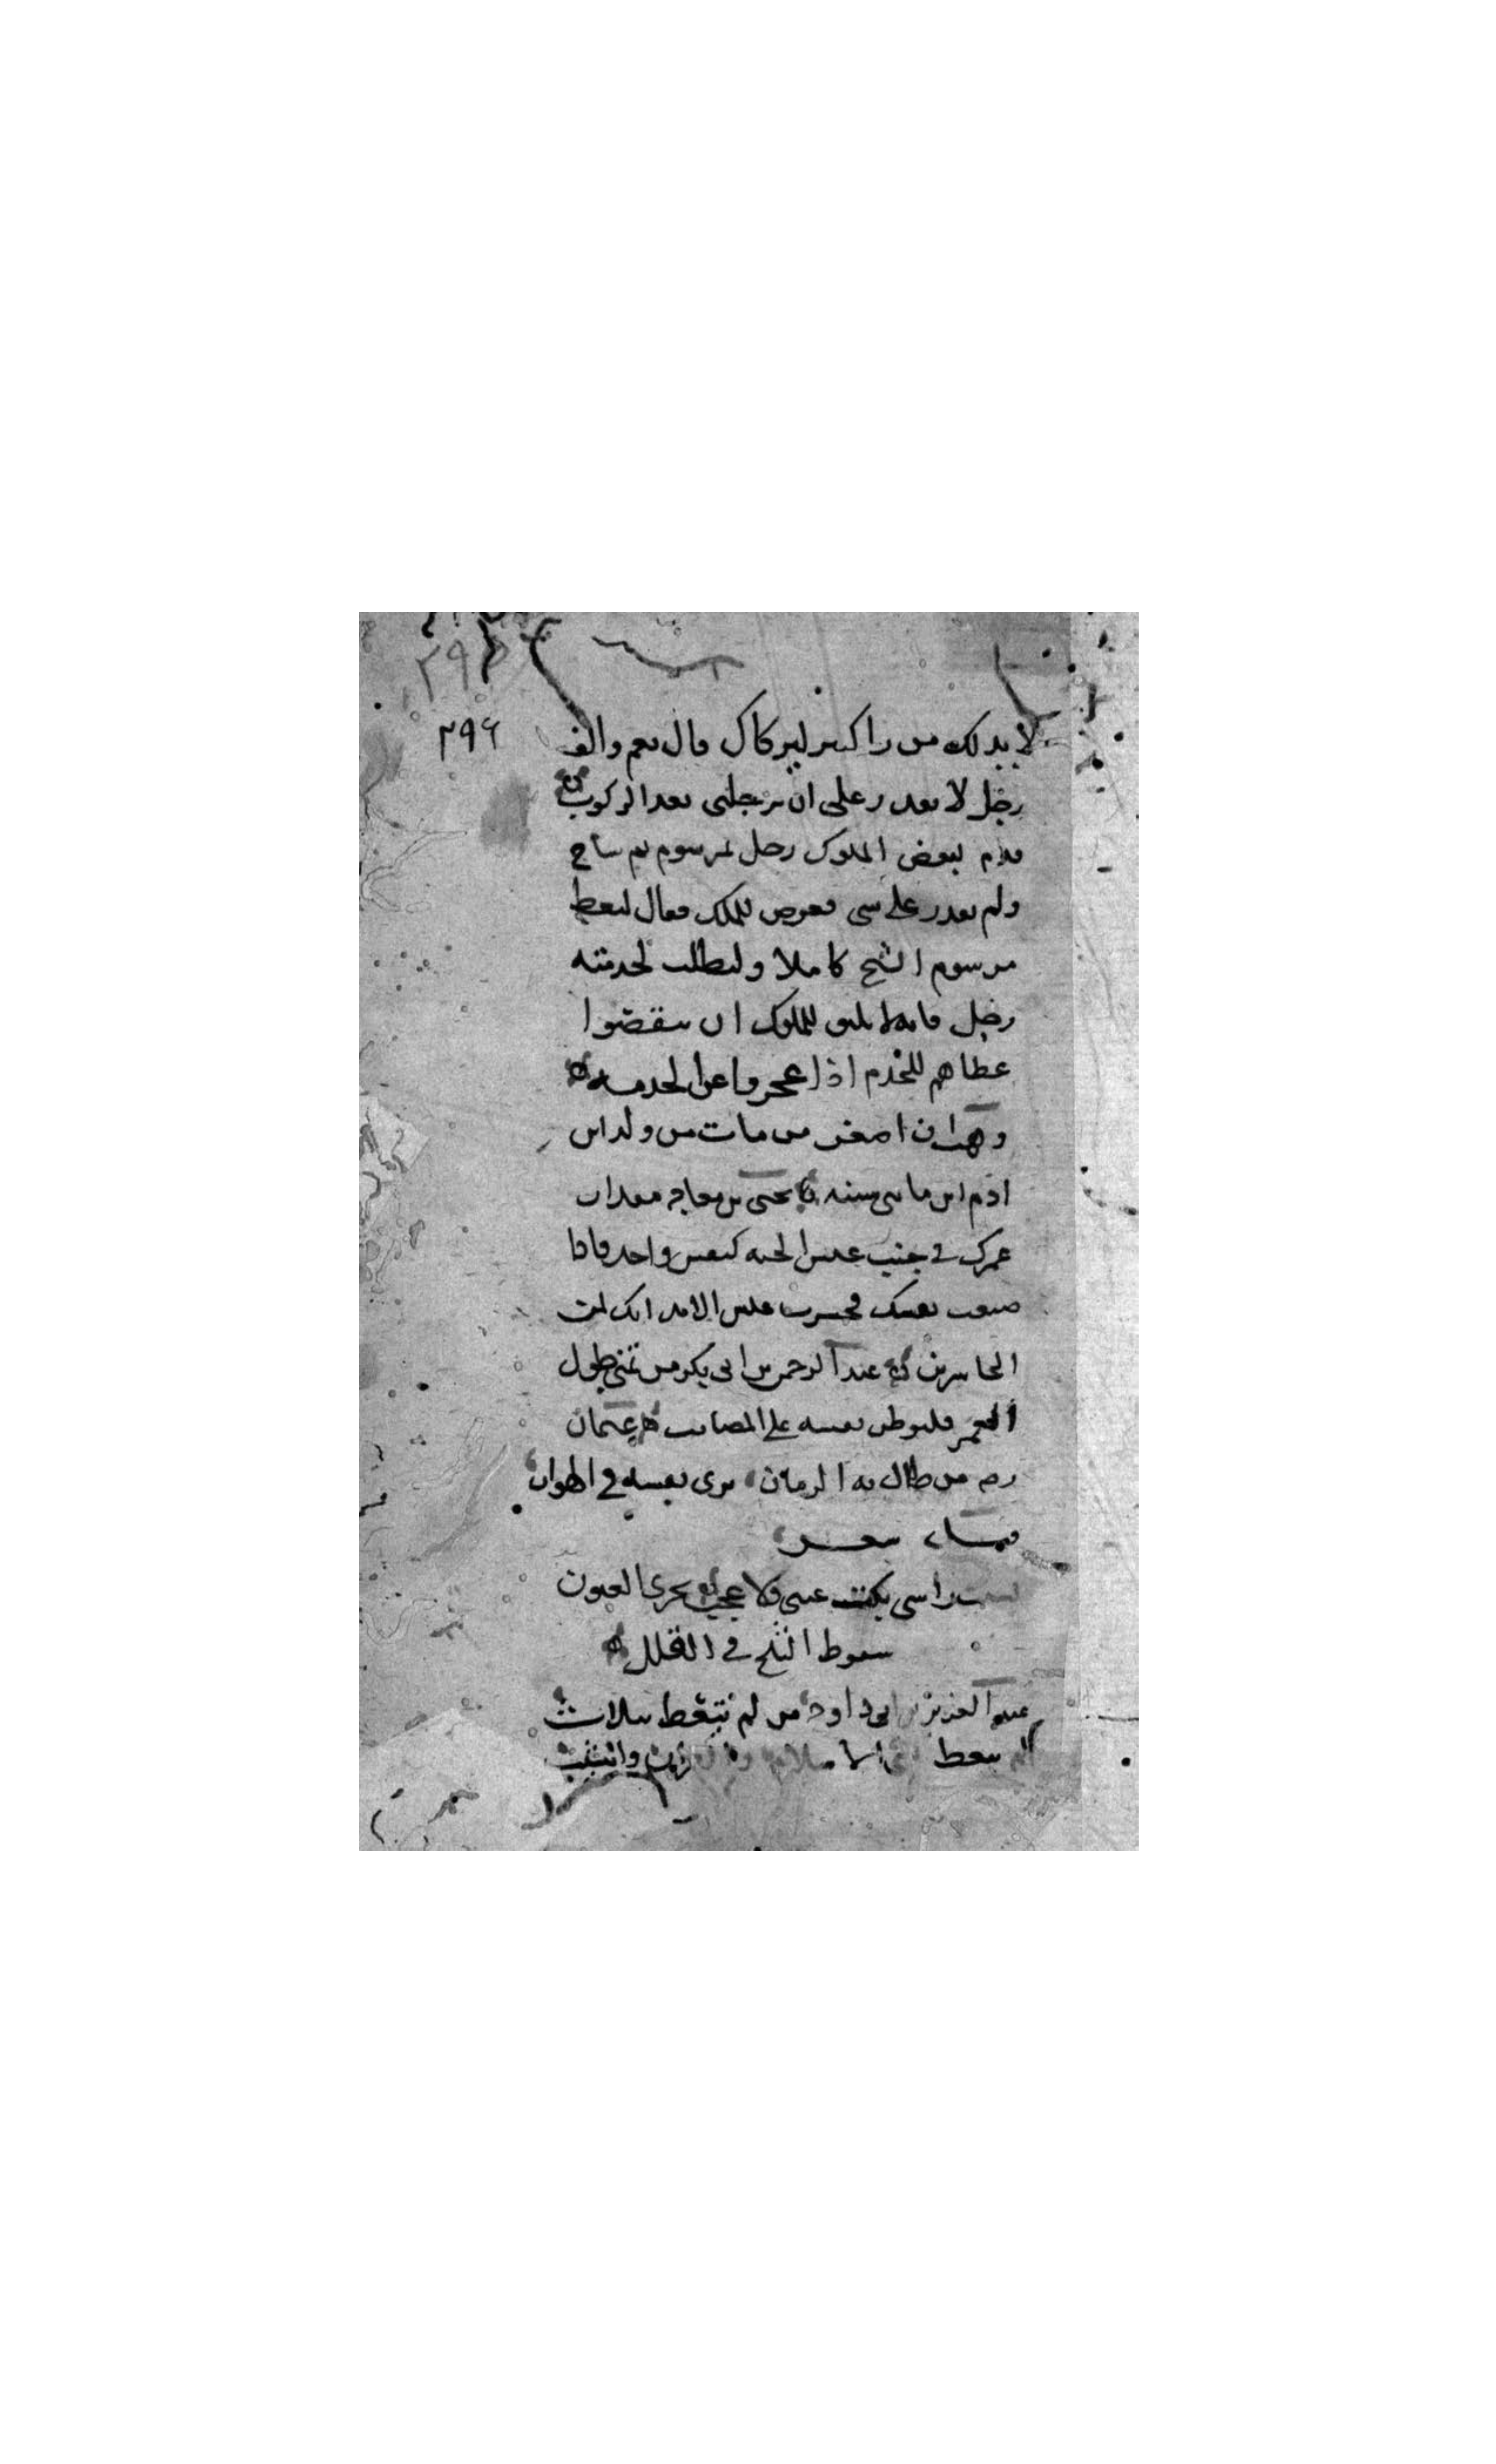 ٢٩٤
٢٩٤
لا بد لك من راكبين ليركباك قال نعم والف
رجل لا يقدر على ان يرجلني بعد الركوب
قدم لبعض الملوك رجل بمرسوم ثم شاخ
ولم يقدر على شي فعرض للملك فقال ليعط
مرسوم الشيخ كاملا وليطلب لخدمته
رجل فانه لا يليق للملوك ان ينقضوا
عطاهم للخدم اذا عجزوا عن الخدمة
وهب ان اصغر من مات من ولد ابن
ادم ابن مايتي سنه يحيى بن معاذ مقدار
عمرك في جنب عيش الجنه كنفس واحد فاذا
ضيعت نفسك فخسرت عيش الابد انك لمن
الخاسرين عبد الرحمن بن ابي بكر من تمنى طول
العمر فليوطن نفسه على المصايب عثمان
رضه من طال به الزمان يرى نفسه في الهوان
شعر
راسي بكت عيني ولا عجب يجري العيون
سقوط الثلج في القلل
عبد العزيز بن ابي داود من لم يتعظ بثلاث
لم يتعظ الاسلام والقران والشيب